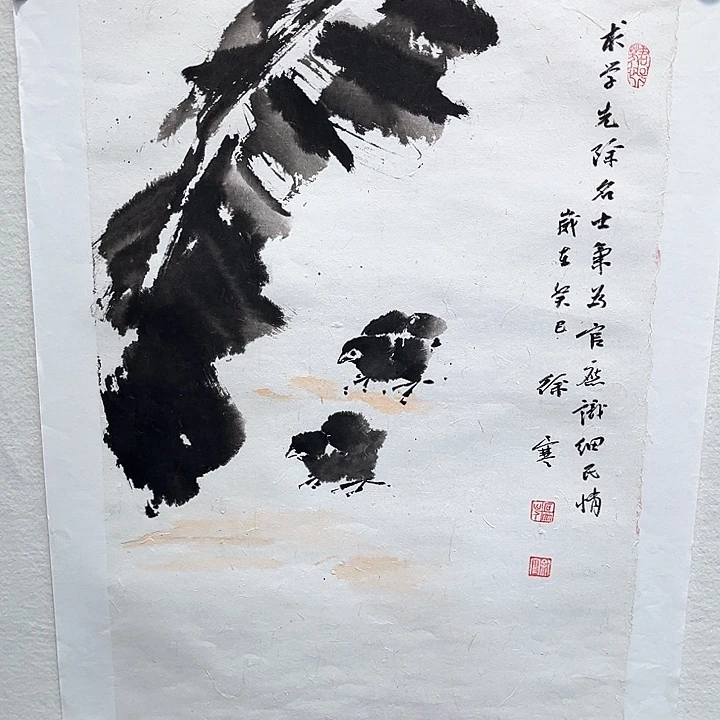 求学先除名士气为官应识细民情
岁在癸巳 徐寒